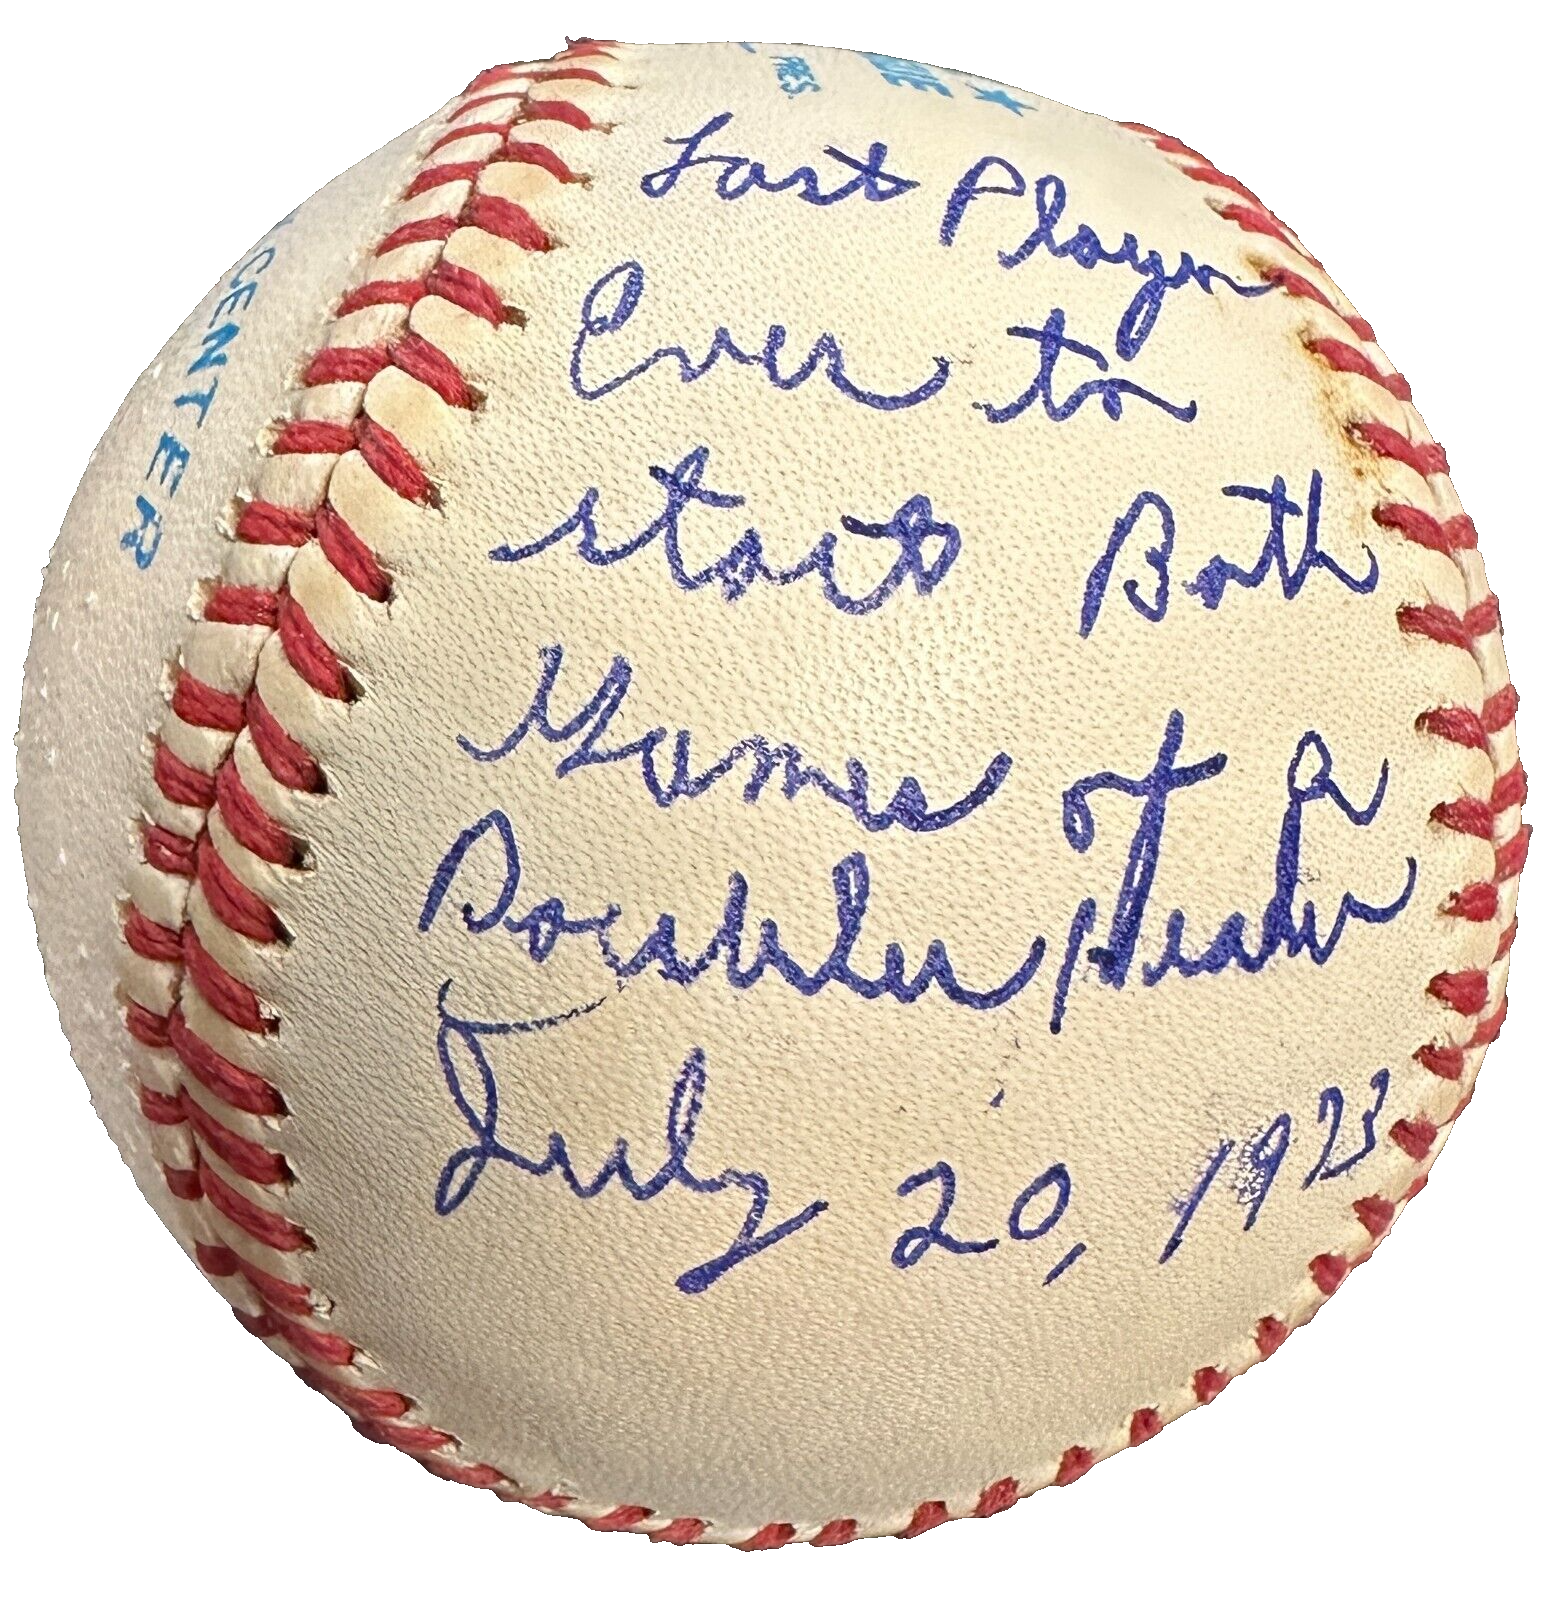 PRES.
CENTER
Last Player
Ever to
start Both
Games of a
Double Header
July 20, 1973